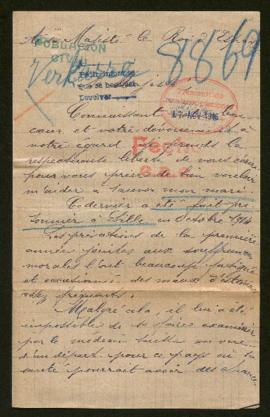 Sa Majesté le Roi d'Espagne
POBLACION
CIVIL
8869
Connaissant
cœur et votre dévouement à
notre égard je prends la
respectueuse liberté de vous
pour vous prier de bien vouloir
m'aider à mon mari.
Ce dernier a été fait pri-
sonnier à Lille en Octobre 1914
Les privations de la première
année jointes aux souffrances
morales l'ont beaucoup fatigué
et occasionné des maux d'estomac
fréquents.
Malgré cela, il lui a été
impossible de se faire examiner
par le médecin Suisse en vue
d'un départ pour ce pays où la
santé pourrait avoir des